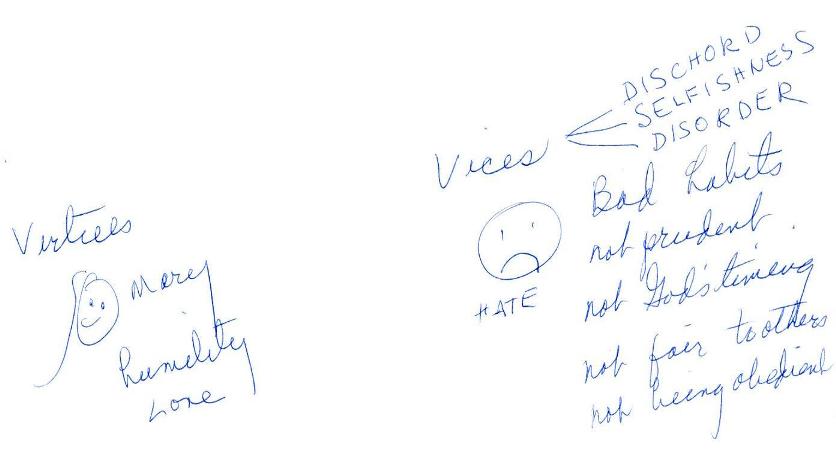 Virtues
Mary
humility
Love
Vices
DISCHORD
SELFISHNESS
DISORDER
HATE
Bad habits
not prudent.
not God's timeing
not fair to others
not being obedient